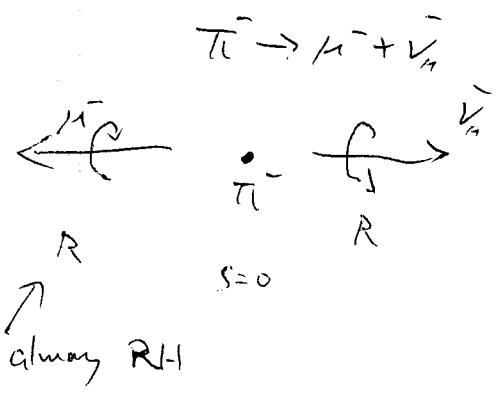 π⁻ → μ⁻ + ν̄_μ
μ⁻ ν̄_μ
π⁻
R R
S=0
always RH